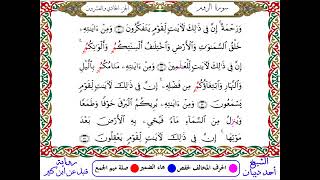 سورة الروم
الجزء الحادي والعشرون
وَرَحْمَةً إِنَّ فِي ذَٰلِكَ لَأٓيَٰتٍ لِّقَوْمٍ يَتَفَكَّرُونَ ۝ وَمِنْ ءَايَٰتِهِۦ
خَلْقُ السَّمَٰوَٰتِ وَالْأَرْضِ وَاخْتِلَٰفُ أَلْسِنَتِكُمُۥ وَأَلْوَٰنِكُمُۥ
إِنَّ فِي ذَٰلِكَ لَأٓيَٰتٍ لِّلْعَٰلَمِينَ ۝ وَمِنْ ءَايَٰتِهِۦ مَنَامُكُمُۥ بِالَّيْلِ
وَالنَّهَارِ وَابْتِغَاؤُكُمُۥ مِن فَضْلِهِۦ إِنَّ فِي ذَٰلِكَ لَأٓيَٰتٍ لِّقَوْمٍ
يَسْمَعُونَ ۝ وَمِنْ ءَايَٰتِهِۦ يُرِيكُمُ الْبَرْقَ خَوْفًا وَطَمَعًا
وَيُنزِلُ مِنَ السَّمَاءِ مَاءً فَيُحْيِۦ بِهِ الْأَرْضَ بَعْدَ
مَوْتِهَا إِنَّ فِي ذَٰلِكَ لَأٓيَٰتٍ لِّقَوْمٍ يَعْقِلُونَ ۝
الشيخ
أحمد ديبان
الحرف المخالف لحفص
هاء الضمير
صلة ميم الجمع
رواية
قنبل عن ابن كثير